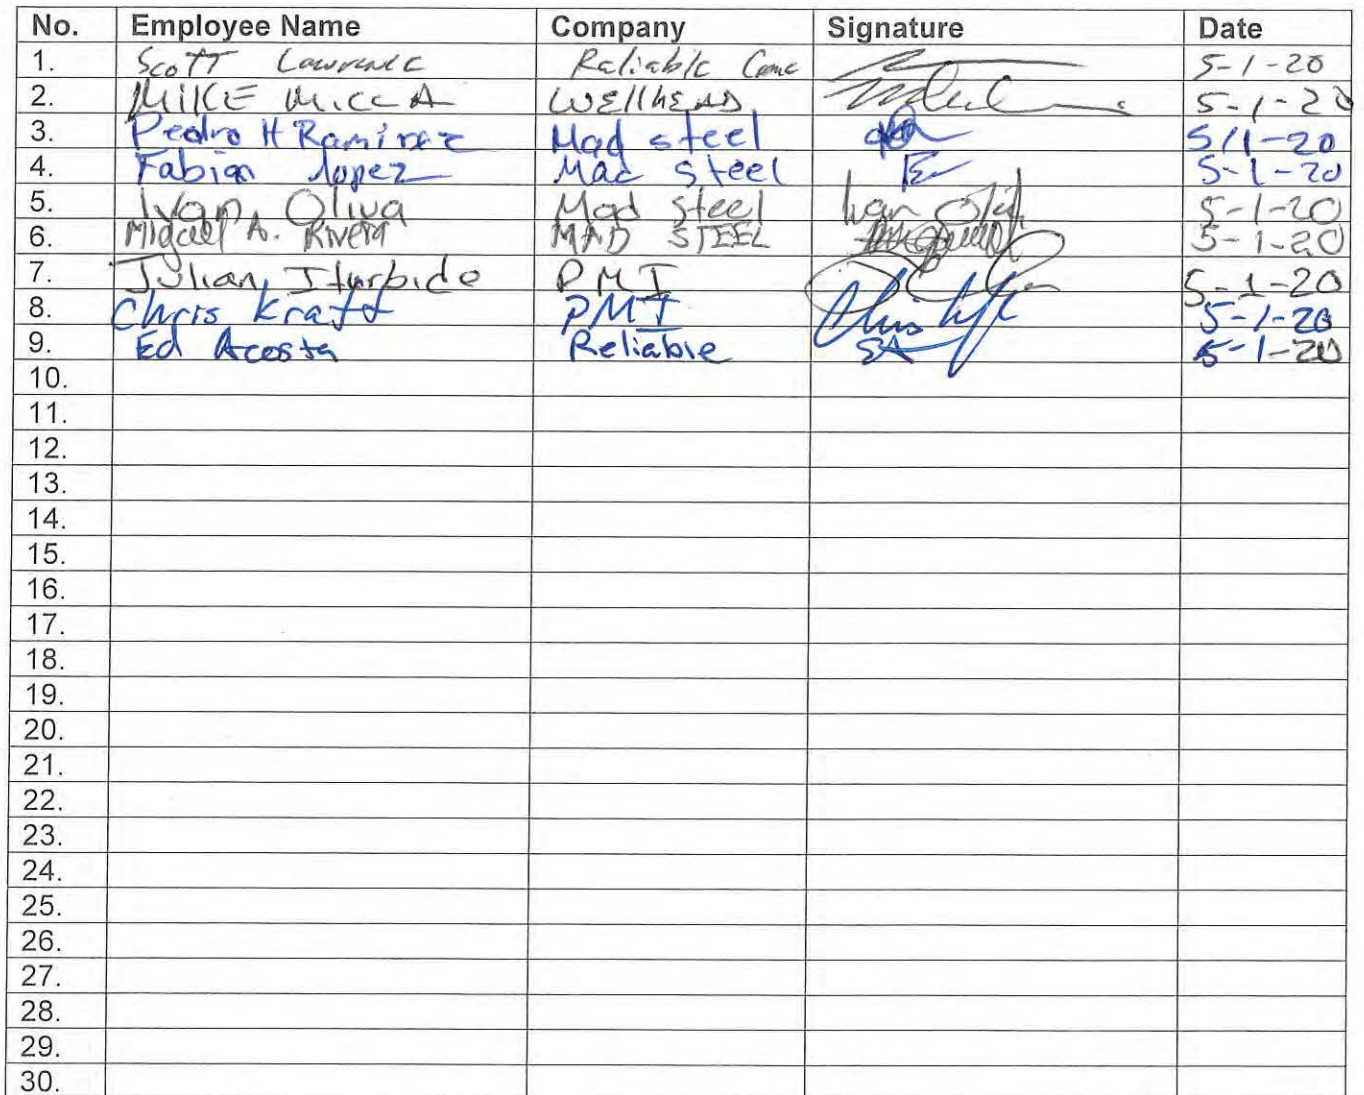 No. Employee Name Company Signature Date
1. Scott Lawrence Reliable Conc 5-1-20
2. MIKE MICCA WEllhEAD 5-1-20
3. Pedro H Ramirez Mad steel 5/1-20
4. Fabian Lopez Mad steel 5-1-20
5. Ivan Oliva Mad steel Ivan Oliva 5-1-20
6. Miguel A. Rivera MAD STEEL 5-1-20
7. Julian Iturbide PMI 5-1-20
8. Chris Kraft PMI 5-1-20
9. Ed Acosta Reliable EA 5-1-20
10.
11.
12.
13.
14.
15.
16.
17.
18.
19.
20.
21.
22.
23.
24.
25.
26.
27.
28.
29.
30.